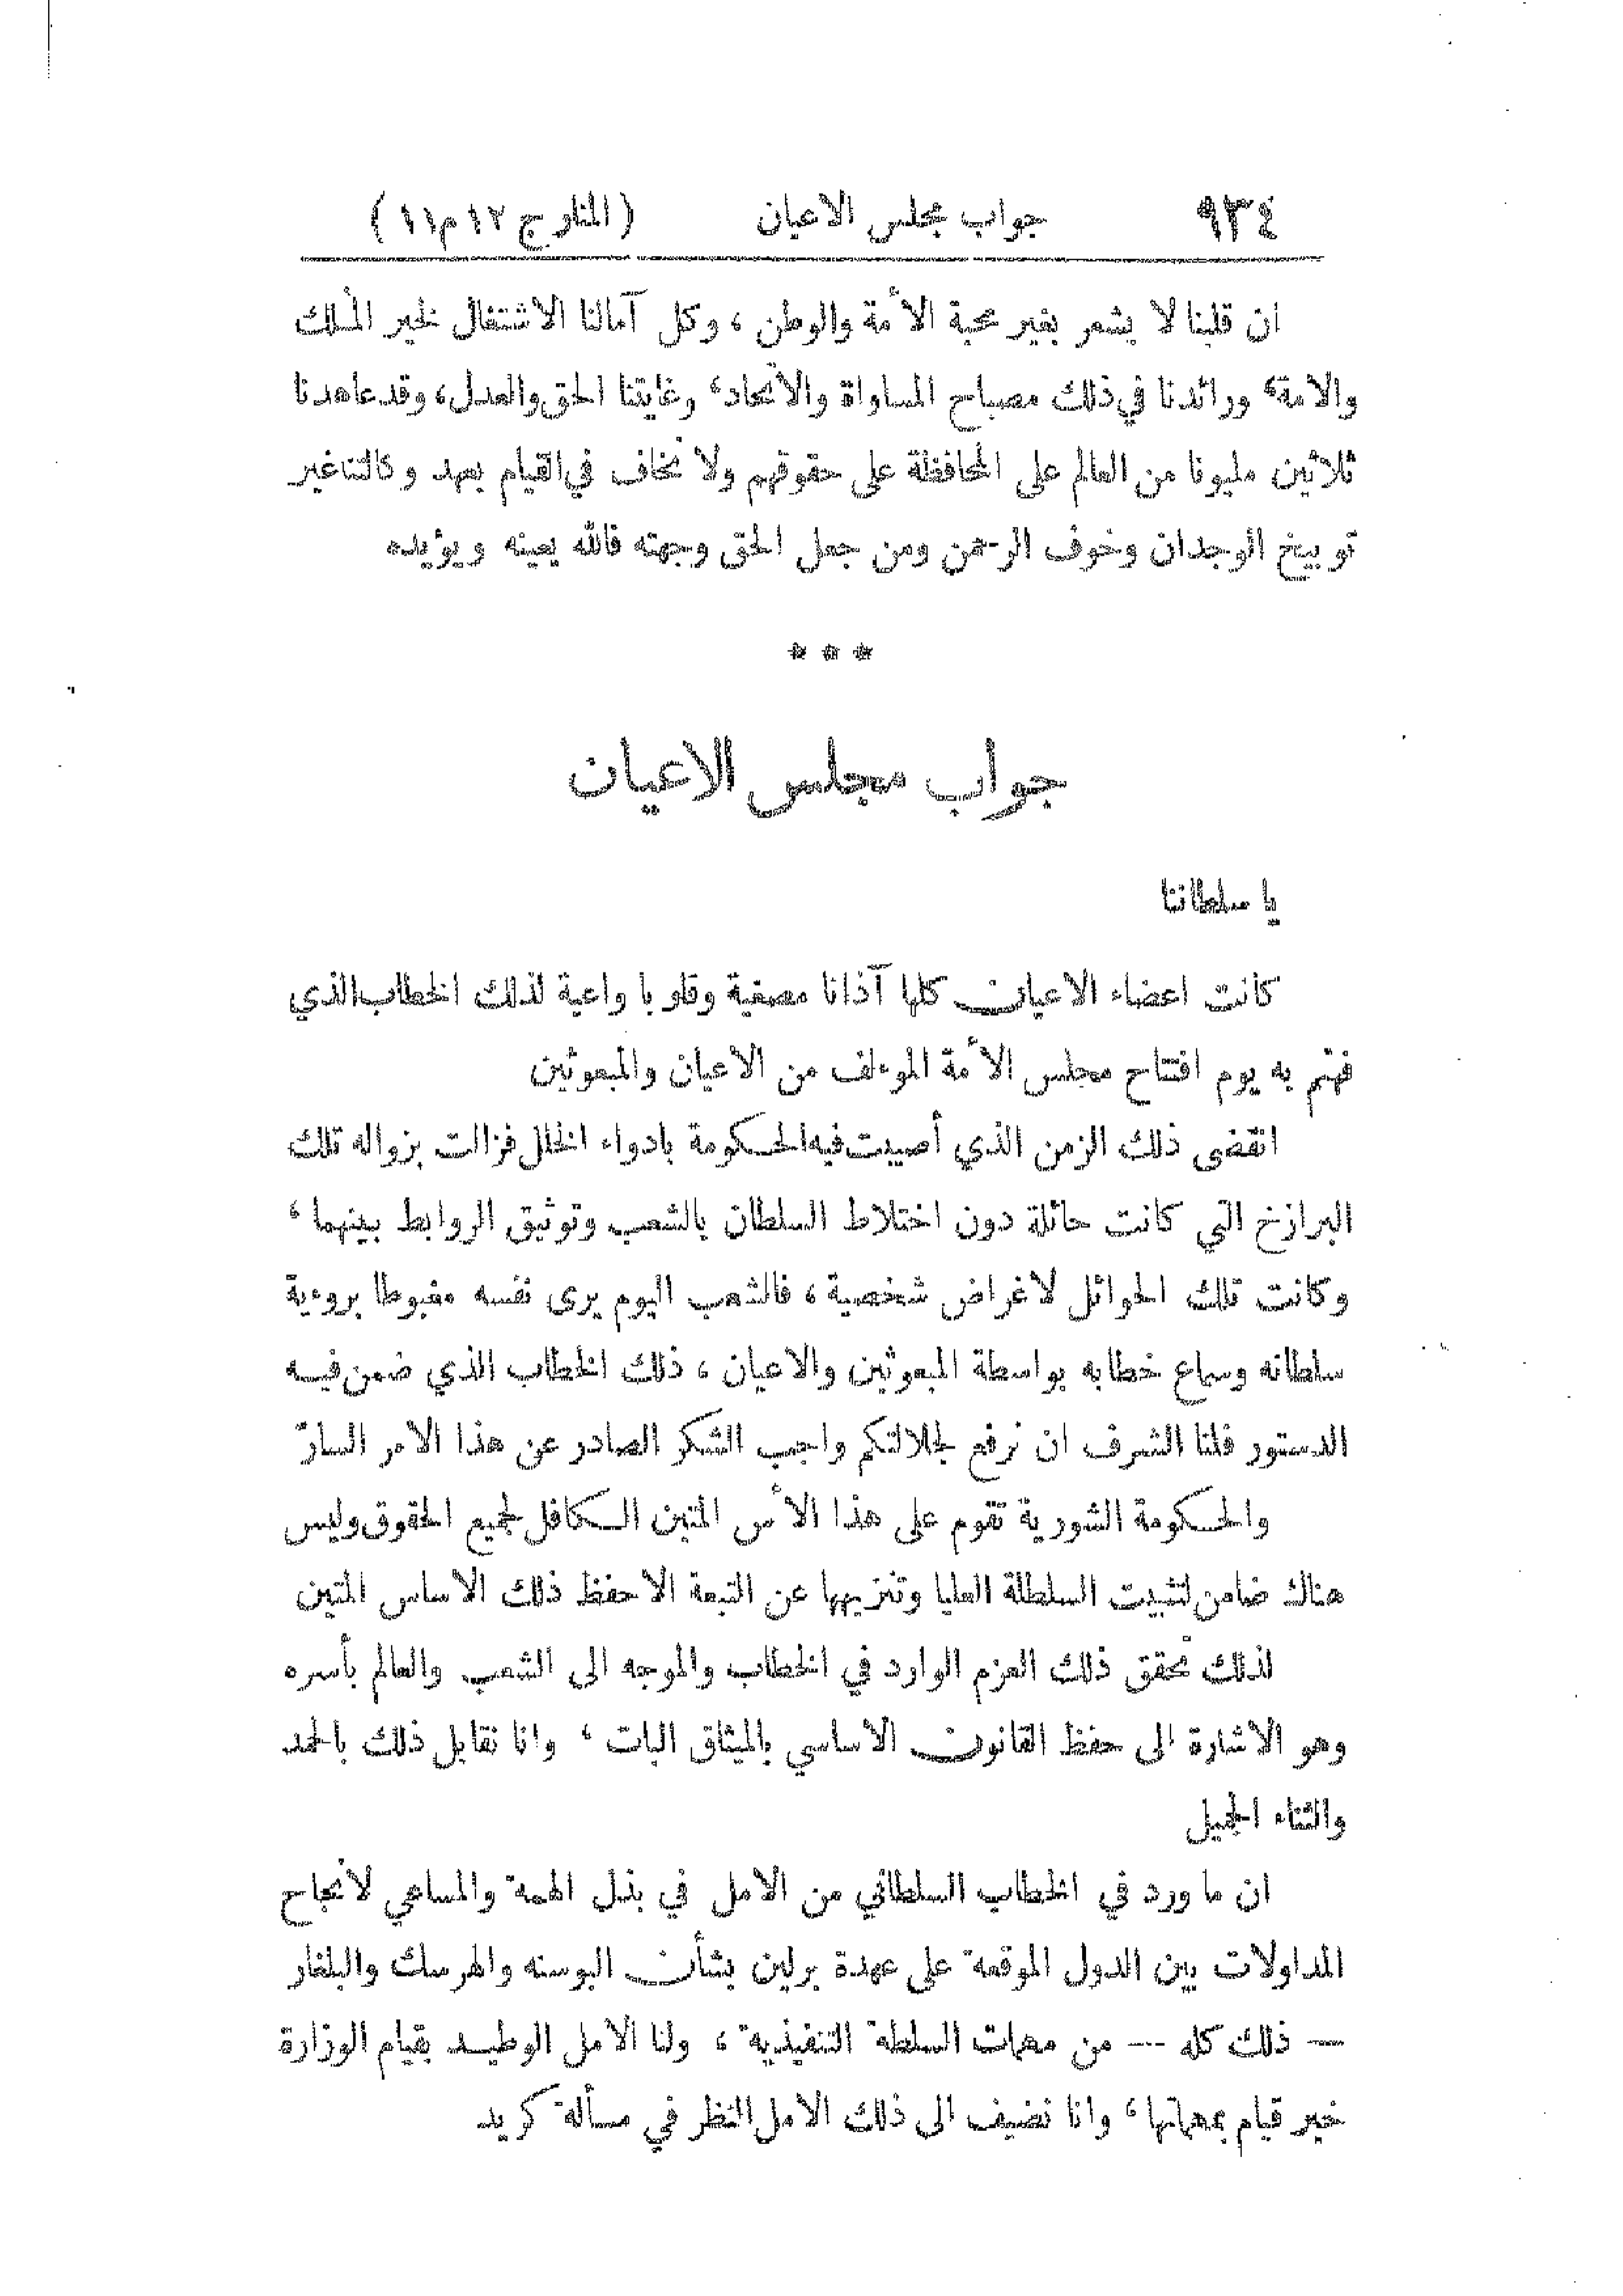 ٩٣٤ جواب مجلس الاعيان (المنار ج ١٢ م ١١)
ان قلبنا لا يشعر بغير محبة الأمة والوطن ، وكل آمالنا الاشتغال لخير المُلك
والامة، ورائدنا في ذلك مصباح المساواة والاتحاد، وغايتنا الحق والعدل، وقد عاهدنا
ثلاثين مليونا من العالم على المحافظة على حقوقهم ولا نخاف في القيام بعهد وكالتنا غير
توبيخ الوجدان وخوف الرحمن ومن جعل الحق وجهته فالله يعينه ويؤيده
* * *
جواب مجلس الاعيان
يا سلطاننا
كانت اعضاء الاعيان كلها آذانا مصغية وقلوبا واعية لذلك الخطاب الذي
فهتم به يوم افتتاح مجلس الأمة الموءلف من الاعيان والمبعوثين
انقضى ذلك الزمن الذي أصيبت فيه الحكومة بادواء الخلل فزالت بزواله تلك
البرازخ التي كانت حائلة دون اختلاط السلطان بالشعب وتوثيق الروابط بينهما ،
وكانت تلك الحوائل لاغراض شخصية ، فالشعب اليوم يرى نفسه مغبوطا بروءية
سلطانه وسماع خطابه بواسطة المبعوثين والاعيان ، ذلك الخطاب الذي ضمن فيه
الدستور فلنا الشرف ان نرفع لجلالتكم واجب الشكر الصادر عن هذا الامر السارّ
والحكومة الشورية تقوم على هذا الأس المتين الكافل لجميع الحقوق وليس
هناك ضامن لتثبيت السلطة العليا وتنزيهها عن التبعة الا حفظ ذلك الاساس المتين
لذلك تحقق ذلك العزم الوارد في الخطاب والموجه الى الشعب والعالم بأسره
وهو الاشارة الى حفظ القانون الاساسي بالميثاق البات ، وانا نقابل ذلك بالحمد
والثناء الجميل
ان ما ورد في الخطاب السلطاني من الامل في بذل الهمة والمساعي لانجاح
المداولات بين الدول الموقعة على عهدة برلين بشأن البوسنه والهرسك والبلغار
— ذلك كله — من مهمات السلطة التنفيذية ، ولنا الامل الوطيد بقيام الوزارة
خير قيام بمهماتها ، وانا نضيف الى ذلك الامل النظر في مسألة كريد